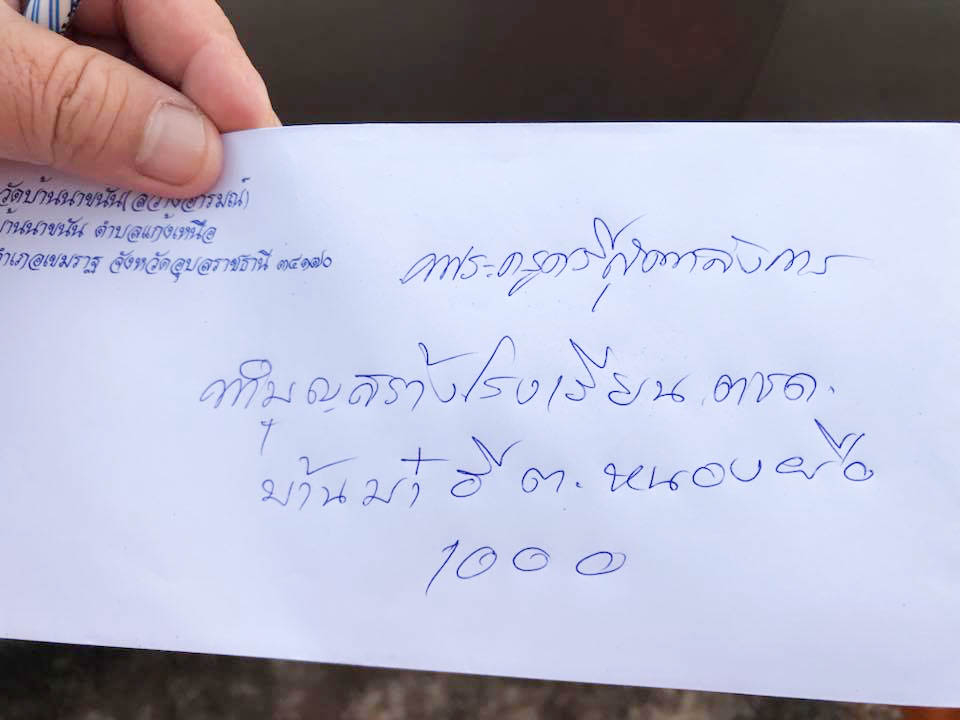 วัดบ้านนาขนัน(สว่างอารมณ์)
บ้านนาขนัน ตำบลแก้งเหนือ
อำเภอเขมราฐ จังหวัดอุบลราชธานี ๓๔๑๗๐
ทำบุญสร้างโรงเรียน ตชด.
บ้านป่า ต. หนองผือ
1000